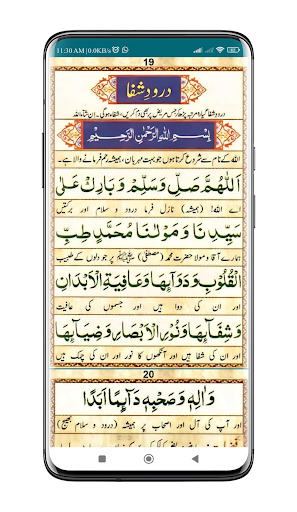 11:30 AM | 0.0KB/s
19
درودِ شفا
درودِ شفا گیارہ مرتبہ پڑھ کر جس مریض پر بھی دم کریں، شفاء ہوگی۔ ان شاءاللہ
بِسْمِ اللهِ الرَّحْمٰنِ الرَّحِيْمِ
اللہ کے نام سے شروع کرتا ہوں جو بہت مہربان، ہمیشہ رحم فرمانے والا ہے۔
اَللّٰهُمَّ صَلِّ وَسَلِّمْ وَبَارِكْ عَلٰى
اے اللہ! (ہمیشہ) نازل فرما درود و سلام اور برکتیں
سَيِّدِنَا وَمَوْلٰنَا مُحَمَّدٍ طِبِّ
ہمارے آقا و مولا حضرت محمد (مصطفٰی) ﷺ پر جو دلوں کے طبیب
الْقُلُوْبِ وَدَوَآئِهَا وَعَافِيَةِ الْاَبْدَانِ
اور ان کی دوا ہیں اور جسموں کی عافیت
وَشِفَآئِهَا وَنُوْرِ الْاَبْصَارِ وَضِيَآئِهَا
اور ان کی شفا ہیں اور آنکھوں کا نور اور ان کی چمک ہیں
20
وَاٰلِهٖ وَصَحْبِهٖ دَآئِمًا اَبَدًا
اور آپ کی آل اور اصحاب پر ہمیشہ (درود و سلام بھیج)